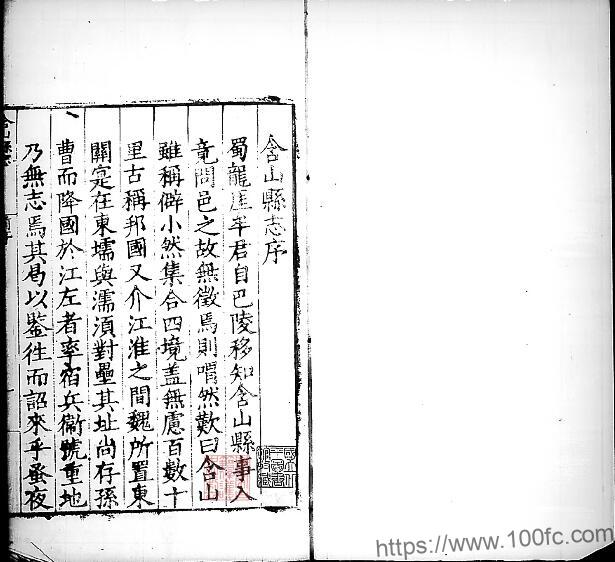 含山縣志序
蜀龍崖牟君自巴陵移知含山縣事入
竟問邑之故無徵焉則喟然歎曰含山
雖稱僻小然集合四境盖無慮百數十
里古稱邦國又介江淮之間魏所置東
關寔在東壖與濡須對壘其址尚存孫
曹而降國於江左者率宿兵衞號重地
乃無志焉其曷以鑒徃而詔來乎蚤夜
https://www.100fc.com